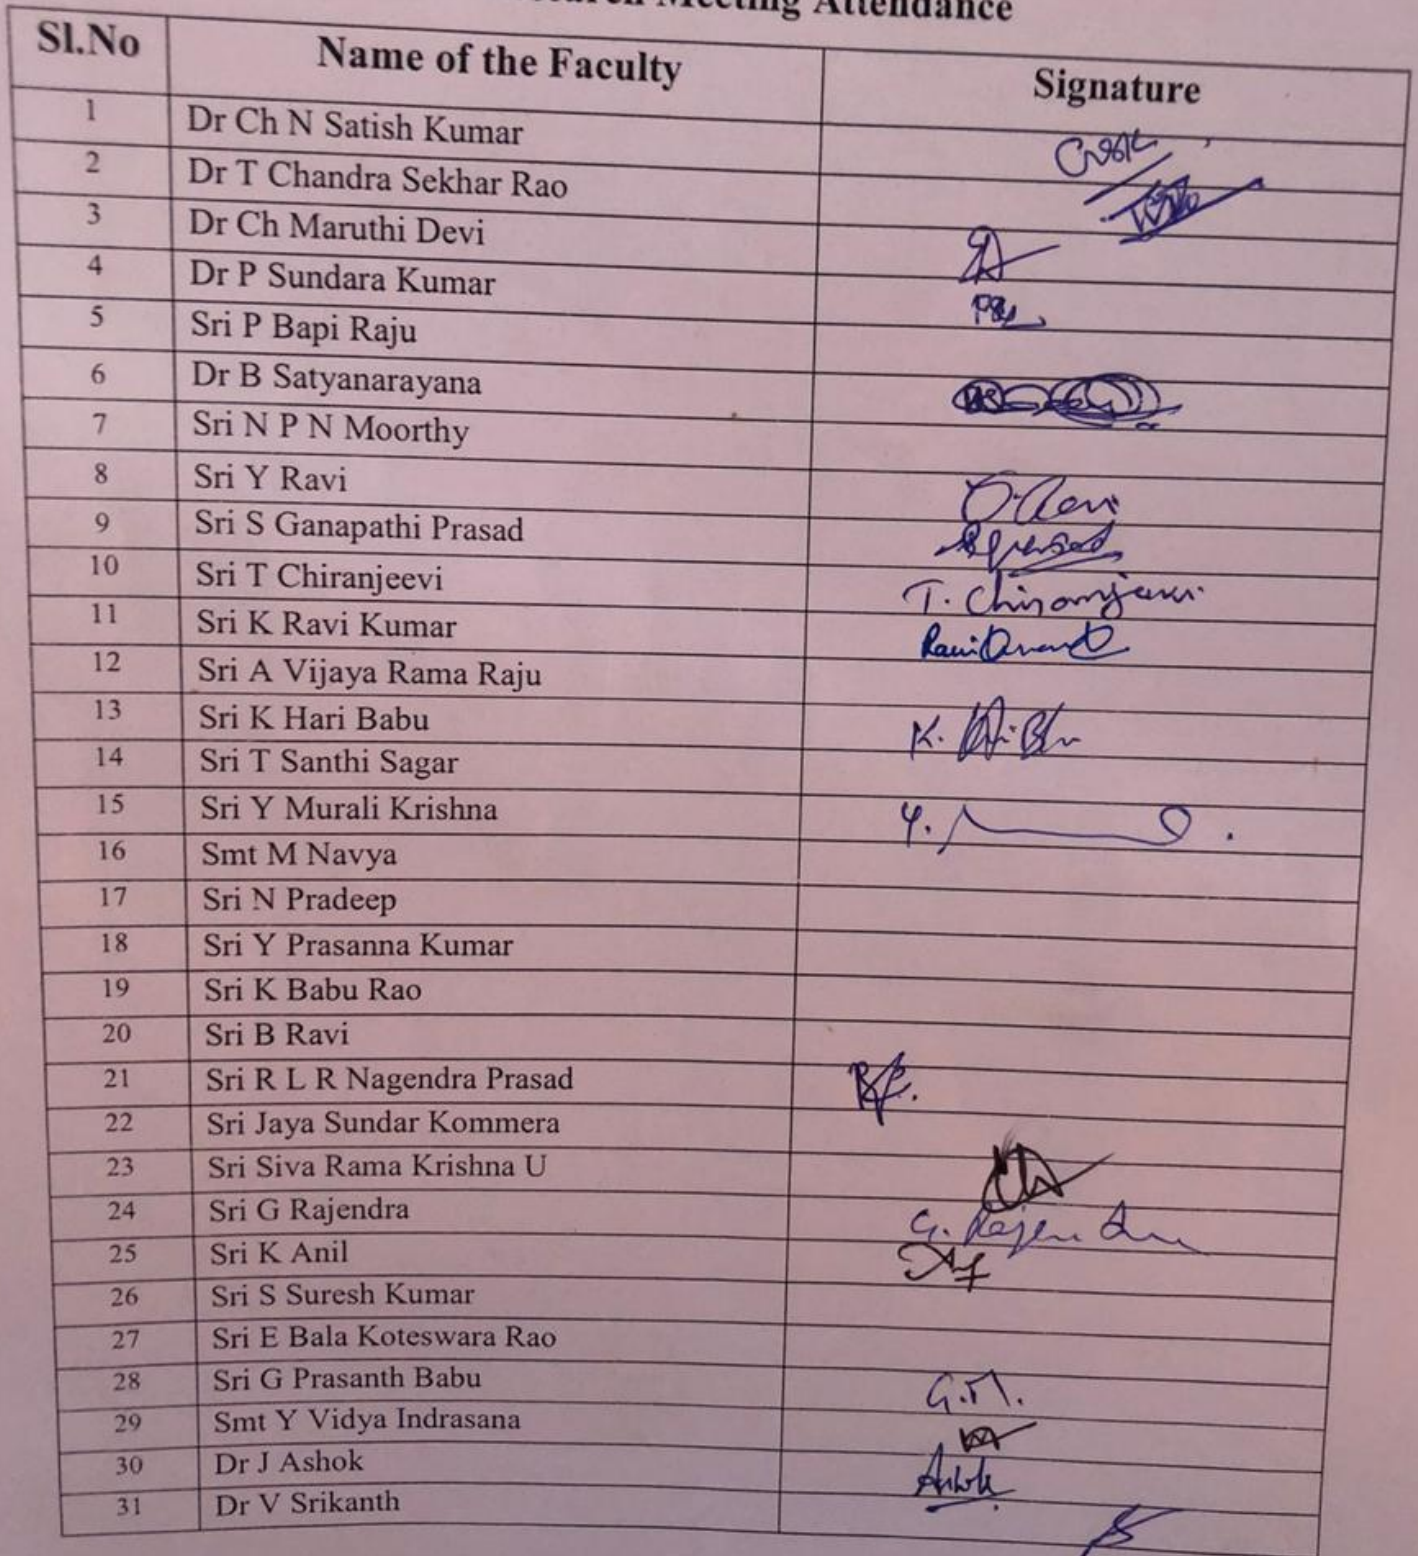 Meeting Attendance
Sl.No Name of the Faculty Signature
1 Dr Ch N Satish Kumar
2 Dr T Chandra Sekhar Rao
3 Dr Ch Maruthi Devi
4 Dr P Sundara Kumar
5 Sri P Bapi Raju
6 Dr B Satyanarayana
7 Sri N P N Moorthy
8 Sri Y Ravi
9 Sri S Ganapathi Prasad
10 Sri T Chiranjeevi T. Chiranjeevi
11 Sri K Ravi Kumar
12 Sri A Vijaya Rama Raju
13 Sri K Hari Babu
14 Sri T Santhi Sagar
15 Sri Y Murali Krishna
16 Smt M Navya
17 Sri N Pradeep
18 Sri Y Prasanna Kumar
19 Sri K Babu Rao
20 Sri B Ravi
21 Sri R L R Nagendra Prasad
22 Sri Jaya Sundar Kommera
23 Sri Siva Rama Krishna U
24 Sri G Rajendra
25 Sri K Anil
26 Sri S Suresh Kumar
27 Sri E Bala Koteswara Rao
28 Sri G Prasanth Babu
29 Smt Y Vidya Indrasana
30 Dr J Ashok Ashok
31 Dr V Srikanth